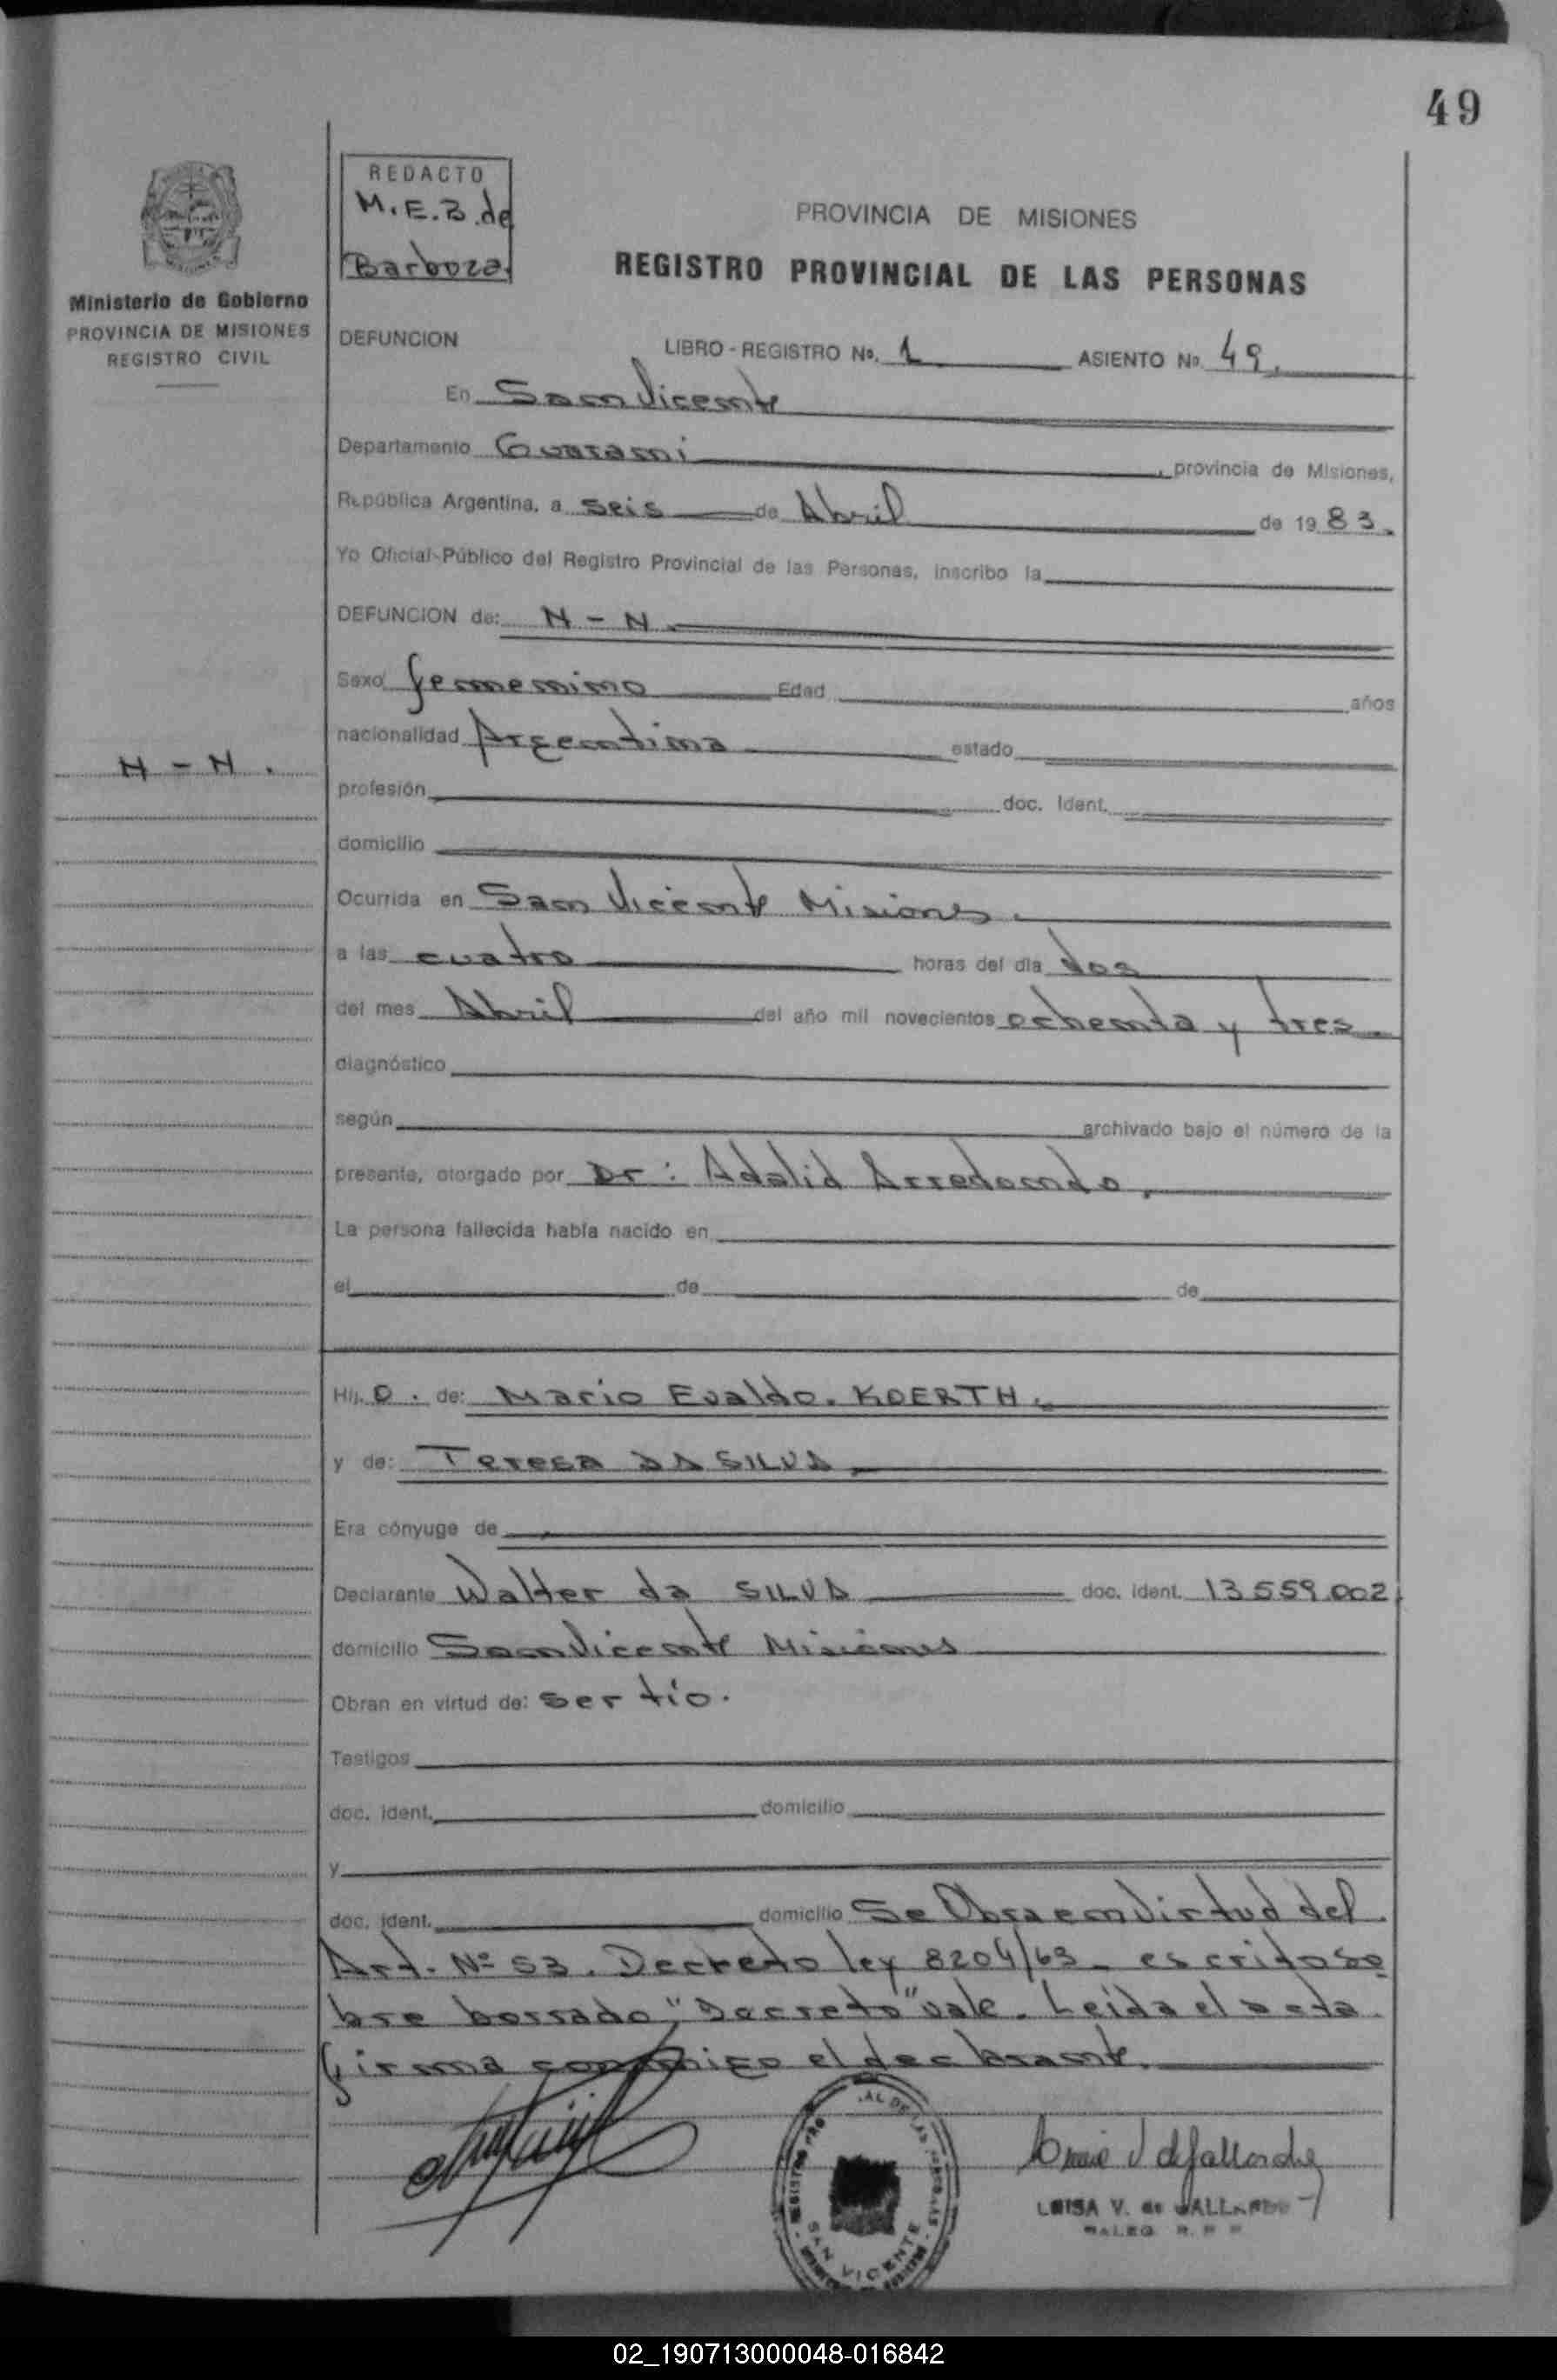 49
REDACTO
M.E.B. de
Barboza
PROVINCIA DE MISIONES
REGISTRO PROVINCIAL DE LAS PERSONAS
Ministerio de Gobierno
PROVINCIA DE MISIONES
REGISTRO CIVIL
DEFUNCION LIBRO - REGISTRO Nº. 1 ASIENTO Nº. 49.
En San Vicente
Departamento Guarani, provincia de Misiones,
República Argentina, a seis de Abril de 1983.
Yo Oficial Público del Registro Provincial de las Personas, inscribo la
DEFUNCION de: N - N
Sexo femenino Edad años
nacionalidad Argentina estado
N - N.
profesión doc. Ident.
domicilio
Ocurrida en San Vicente Misiones.
a las cuatro horas del día dos
del mes Abril del año mil novecientos ochenta y tres
diagnóstico
según archivado bajo el número de la
presente, otorgado por Dr: Adalid Arredondo,
La persona fallecida había nacido en
el de de
Hij o. de: Mario Evaldo. KOERTH.
y de: Teresa DA SILVA
Era cónyuge de
Declarante Walter da SILVA doc. Ident. 13.559.002
domicilio San Vicente Misiones
Obran en virtud de: ser tío.
Testigos
doc. Ident. domicilio
y
doc. Ident. domicilio Se Obra en Virtud del
Art. Nº 53. Decreto ley 8204/63 - escrito so
bre borrado "Decreto" vale. Leida el acta
firma conmigo el declarante.
AL DE LAS PERSONAS
REGISTRO PRO
SAN VICENTE
LUISA V. de GALLARDO
02_190713000048-016842